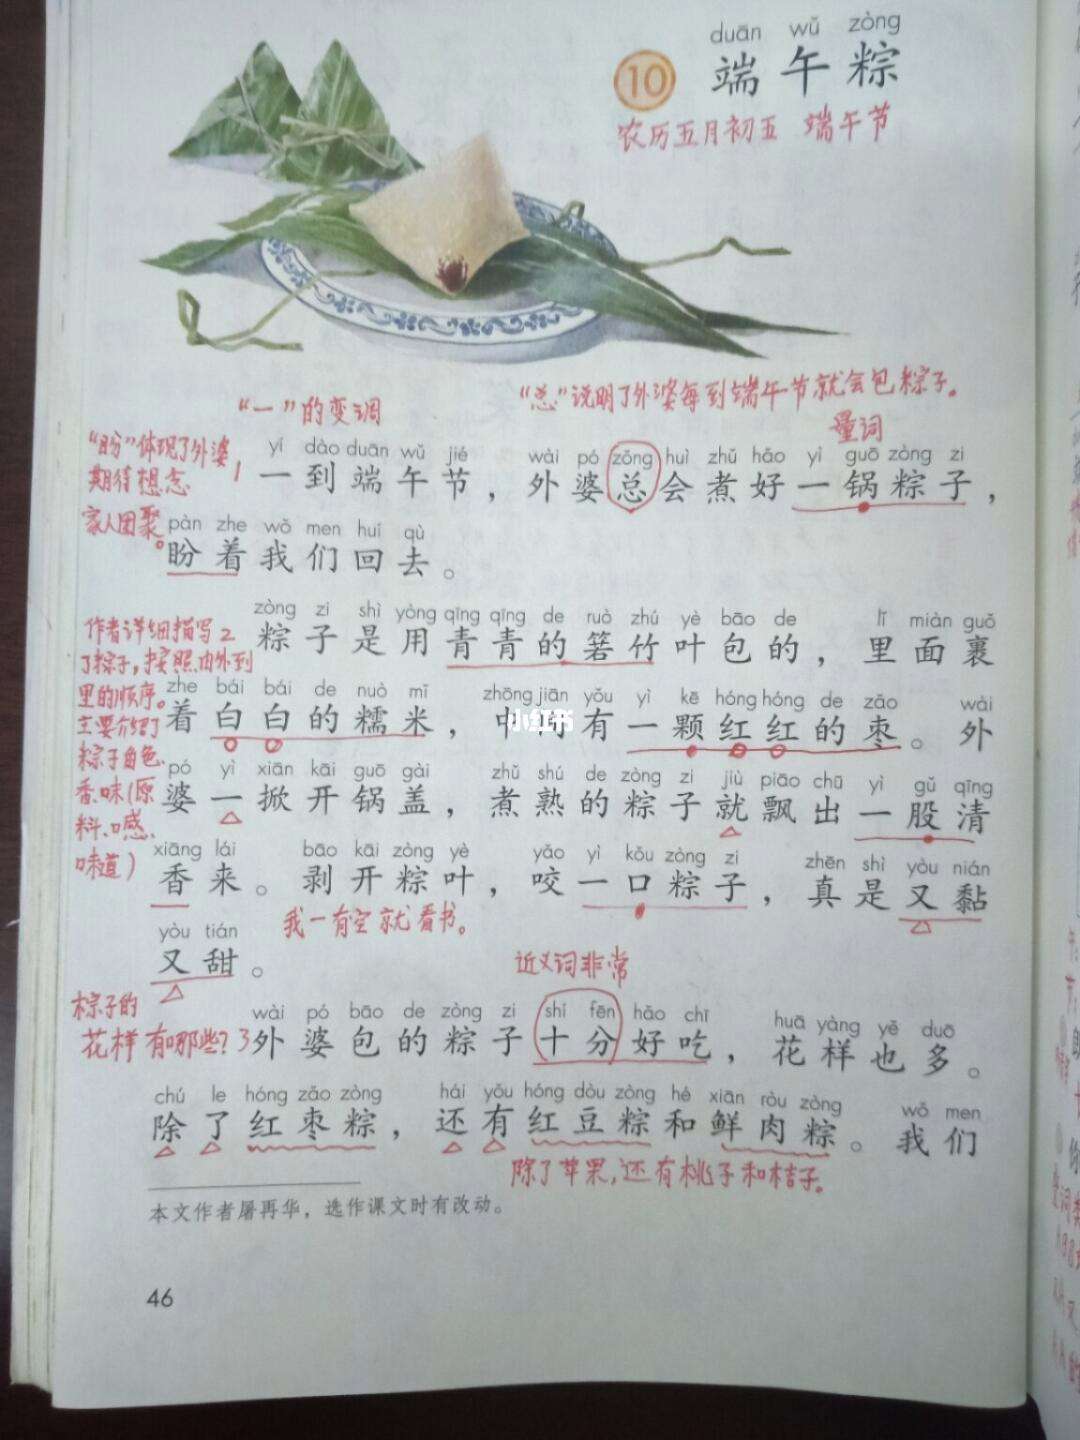 duān wǔ zòng
10 端午粽
农历五月初五 端午节
“总”说明了外婆每到端午节就会包粽子。
“一”的变调
量词
“盼”体现了外婆
期待想念
家人团聚。
1
yí dào duān wǔ jié wài pó zǒng huì zhǔ hǎo yì guō zòng zi
一到端午节，外婆总会煮好一锅粽子，
pàn zhe wǒ men huí qù
盼着我们回去。
作者详细描写
了粽子，按照由外到
里的顺序。
主要介绍了
粽子颜色、
香、味(原
料、口感、
味道)
2
zòng zi shì yòng qīng qīng de ruò zhú yè bāo de lǐ miàn guǒ
粽子是用青青的箬竹叶包的，里面裹
zhe bái bái de nuò mǐ zhōng jiān yǒu yì kē hóng hóng de zǎo wài
着白白的糯米，中间有一颗红红的枣。外
小红书
pó yì xiān kāi guō gài zhǔ shú de zòng zi jiù piāo chū yì gǔ qīng
婆一掀开锅盖，煮熟的粽子就飘出一股清
xiāng lái bāo kāi zòng yè yǎo yì kǒu zòng zi zhēn shì yòu nián
香来。剥开粽叶，咬一口粽子，真是又黏
我一有空就看书。
yòu tián
又甜。
近义词非常
粽子的
花样有哪些？
3
wài pó bāo de zòng zi shí fēn hǎo chī huā yàng yě duō
外婆包的粽子十分好吃，花样也多。
chú le hóng zǎo zòng hái yǒu hóng dòu zòng hé xiān ròu zòng wǒ men
除了红枣粽，还有红豆粽和鲜肉粽。我们
除了苹果，还有桃子和桔子。
本文作者屠再华，选作课文时有改动。
46